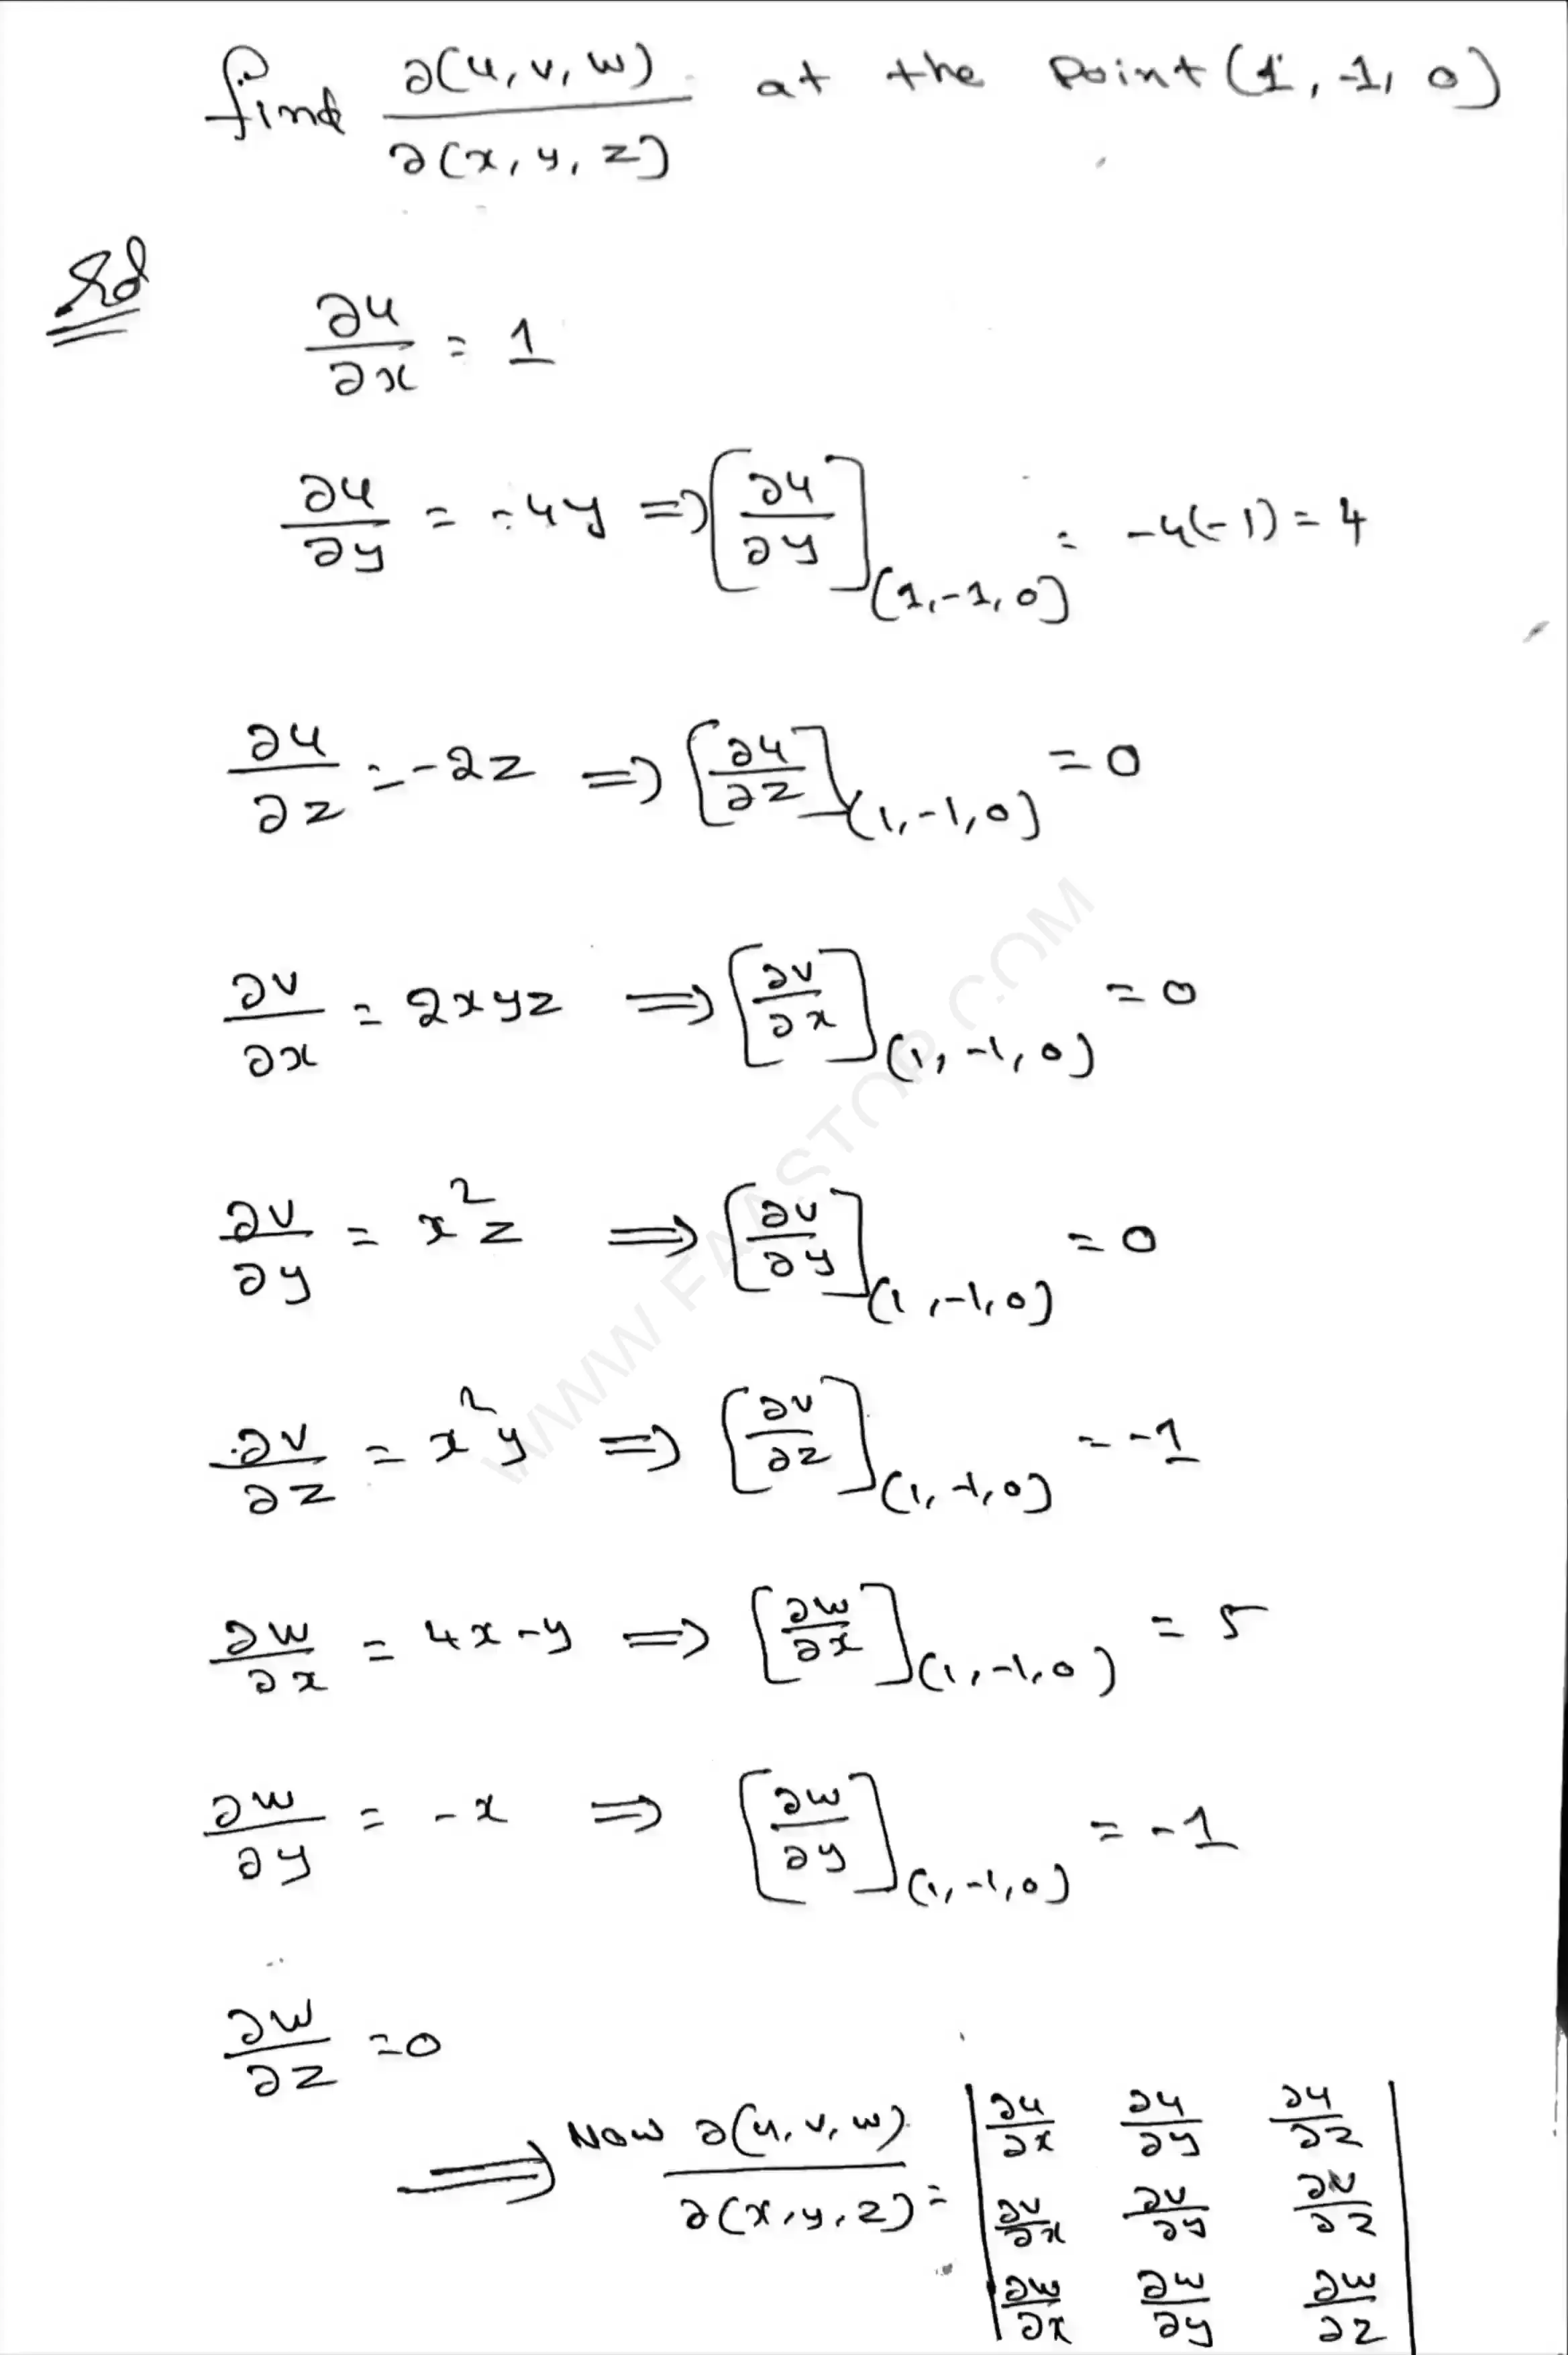 find ∂(u, v, w) / ∂(x, y, z) at the point (1, -1, 0)
Sol
∂u/∂x = 1
∂u/∂y = -4y ⇒ [∂u/∂y](1, -1, 0) = -4(-1) = 4
∂u/∂z = -2z ⇒ [∂u/∂z](1, -1, 0) = 0
∂v/∂x = 2xyz ⇒ [∂v/∂x](1, -1, 0) = 0
∂v/∂y = x²z ⇒ [∂v/∂y](1, -1, 0) = 0
∂v/∂z = x²y ⇒ [∂v/∂z](1, -1, 0) = -1
∂w/∂x = 4x-y ⇒ [∂w/∂x](1, -1, 0) = 5
∂w/∂y = -x ⇒ [∂w/∂y](1, -1, 0) = -1
∂w/∂z = 0
⇒ Now ∂(u, v, w) / ∂(x, y, z) = | ∂u/∂x ∂u/∂y ∂u/∂z |
| ∂v/∂x ∂v/∂y ∂v/∂z |
| ∂w/∂x ∂w/∂y ∂w/∂z |
WWW.FAASTOP.COM